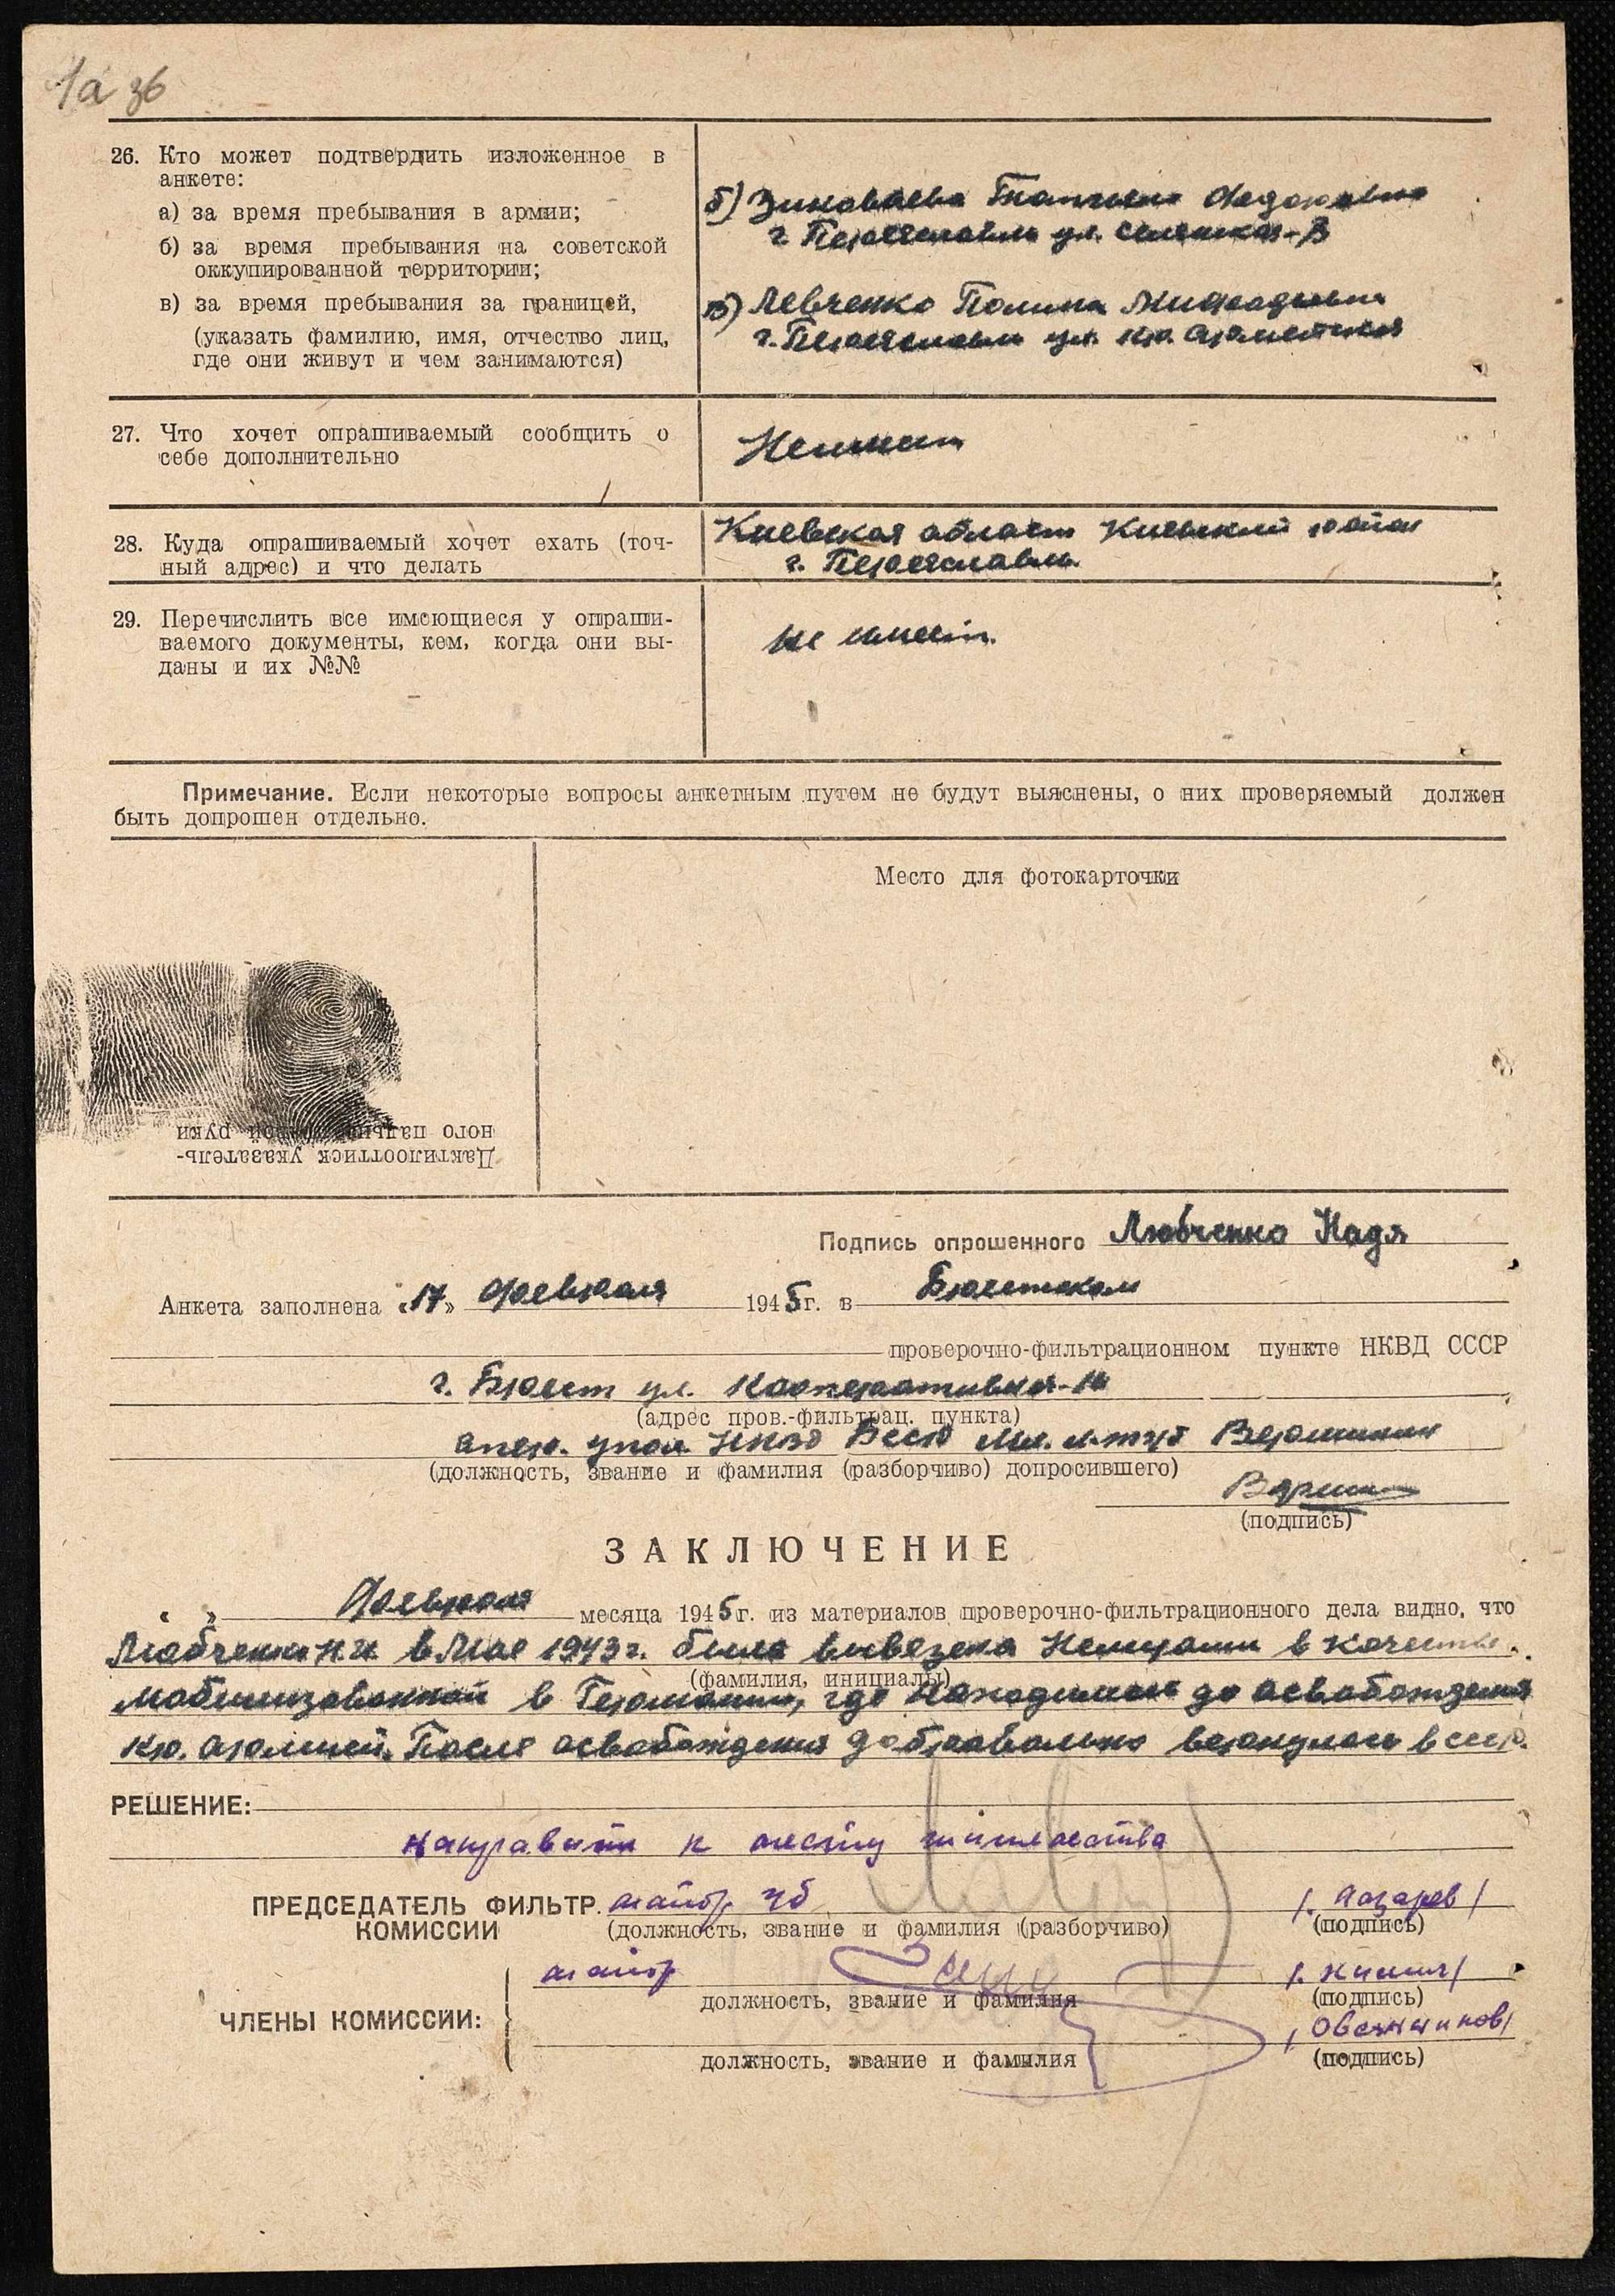 26. Кто может подтвердить изложенное в
анкете:
а) за время пребывания в армии;
б) за время пребывания на советской
оккупированной территории;
в) за время пребывания за границей,
(указать фамилию, имя, отчество лиц,
где они живут и чем занимаются)
б)
г. Переяславль ул.
в) Левченко Полина
г. Переяславль ул. Кр. Армейская
27. Что хочет опрашиваемый сообщить о
себе дополнительно
28. Куда опрашиваемый хочет ехать (точ-
ный адрес) и что делать
Киевская област Киевский район
г. Переяславль
29. Перечислить все имеющиеся у опраши-
ваемого документы, кем, когда они вы-
даны и их №№
не имеет.
Примечание. Если некоторые вопросы анкетным путем не будут выяснены, о них проверяемый должен
быть допрошен отдельно.
Место для фотокарточки
Дактилооттиск указатель-
ного пальца руки
Подпись опрошенного Любченко Надя
Анкета заполнена «17» Февраля 1945 г. в Брестском
проверочно-фильтрационном пункте НКВД СССР
г. Брест ул. Кооперативная
(адрес пров.-фильтрац. пункта)
опер. упол. НКВД БССР мл. л-т г/б Вершинин
(должность, звание и фамилия (разборчиво) допросившего)
(подпись)
ЗАКЛЮЧЕНИЕ
« » Февраля месяца 1945 г. из материалов проверочно-фильтрационного дела видно, что
Любченко Н.И. в Мае 1943 г. была вывезена Немцами в качестве
(фамилия, инициалы)
мобилизованной в Германии, где находилась до освобождения
Кр. Армией. После освобождения добровольно вернулась в СССР.
РЕШЕНИЕ:
Направить к месту жительства
ПРЕДСЕДАТЕЛЬ ФИЛЬТР. майор гб /. Лазарев /
КОМИССИИ (должность, звание и фамилия (разборчиво) (подпись)
майор
должность, звание и фамилия (подпись)
ЧЛЕНЫ КОМИССИИ:
/ Овсянников /
должность, звание и фамилия (подпись)